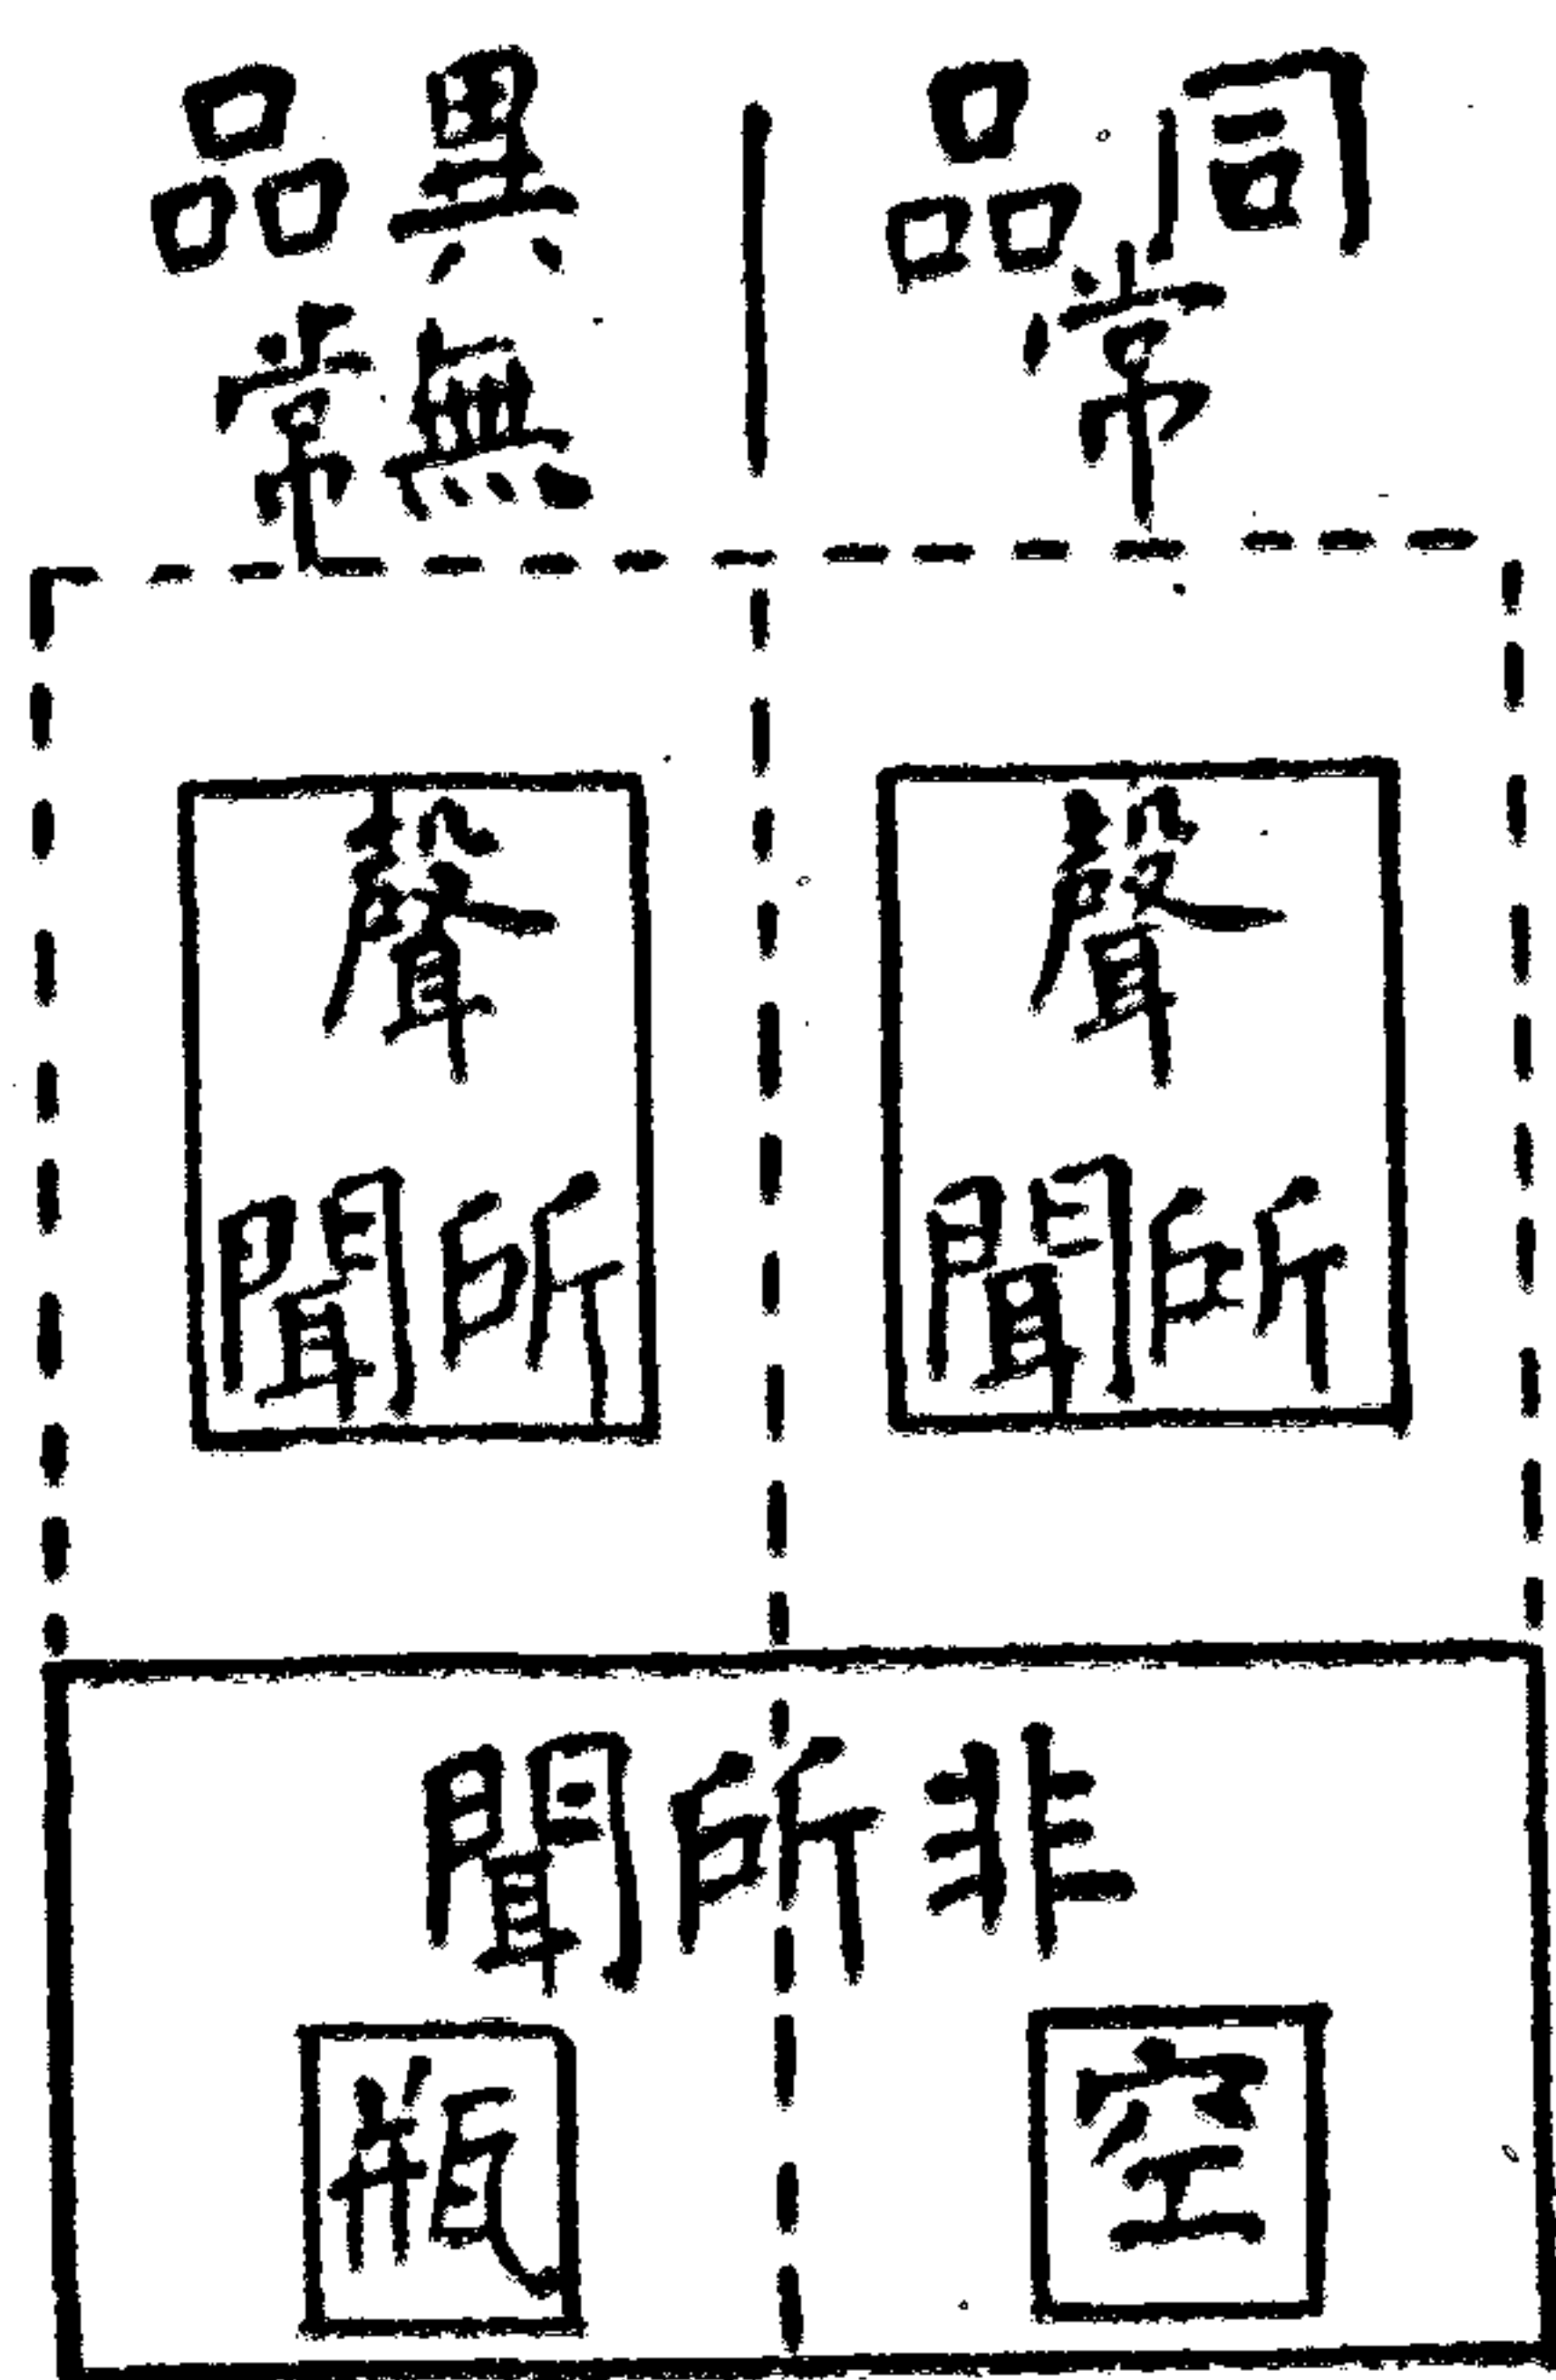 同品
常
異品
無常
聲
所聞
聲
所聞
非所聞
空
瓶